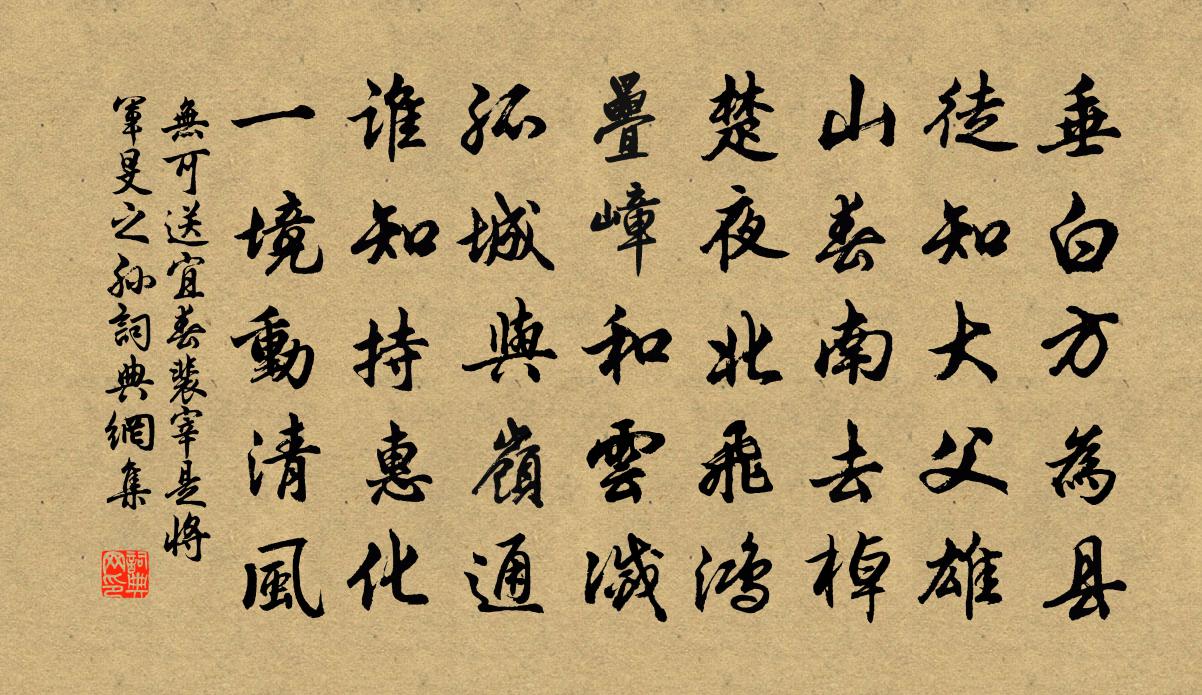 垂白方為县
徒知大父雄
山春南去棹
楚夜北飛鴻
疊嶂和雲滅
孤城與嶺通
誰知持惠化
一境動清風
無可送宜春裴宰是將
軍旻之孫詞典網集
詞典網印